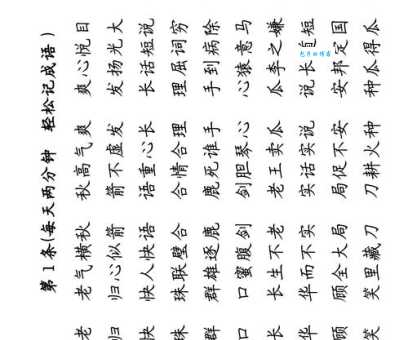 第1条(每天两分钟 轻松记成语)
老 老气横秋 秋高气爽 爽心悦目
归 归心似箭 箭不虚发 发扬光大
快 快人快语 语重心长 长话短说
珠 珠联璧合 合情合理 理屈词穷
群 群雄逐鹿 鹿死谁手 手到病除
口 口蜜腹剑 剑胆琴心 心猿意马
长 长生不老 老王卖瓜 瓜李之嫌
华 华而不实 实话实说 说长短
顾 顾全大局 局促不安 安邦定国
笑 笑里藏刀 刀耕火种 种瓜得瓜